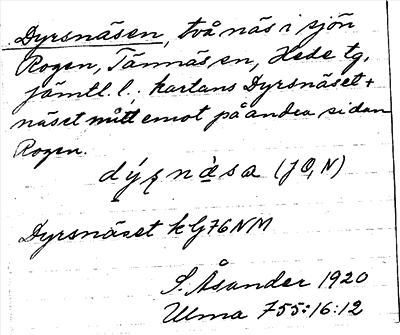 Dyrsnäsen, två näs i sjön
Rogen, Tännäs sn, Hede tg,
jämtl. l.; kartans Dyrsnäset +
näset mitt emot på andra sidan
Rogen.
(JO, N)
Dyrsnäset k G76NM
S. Åsander 1920
Ulma 755:16:12